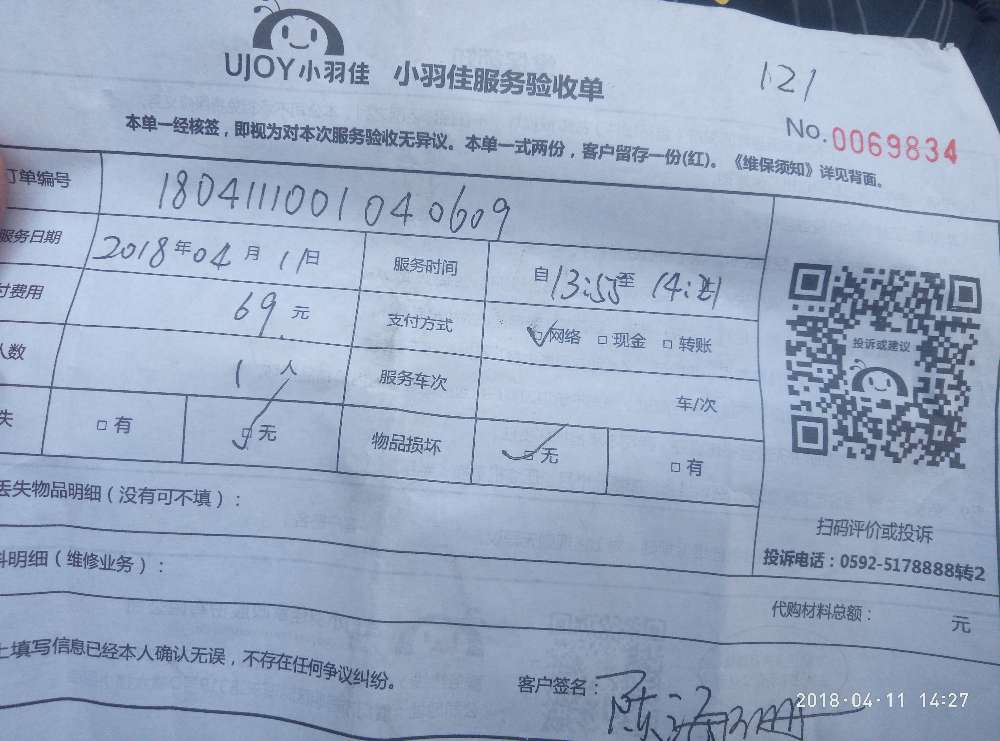 UJOY小羽佳 小羽佳服务验收单
121
No.0069834
本单一经核签，即视为对本次服务验收无异议。本单一式两份，客户留存一份(红)。《维保须知》详见背面。
订单编号 1804111001040609
服务日期 2018年04月11日 服务时间 自13:55至14:21
付费用 69元 支付方式 网络 现金 转账
人数 1人 服务车次 车/次
失 有 无 物品损坏 无 有
投诉或建议
丢失物品明细（没有可不填）：
扫码评价或投诉
投诉电话：0592-5178888转2
料明细（维修业务）：
代购材料总额： 元
上填写信息已经本人确认无误，不存在任何争议纠纷。
客户签名：陈
2018-04-11 14:27